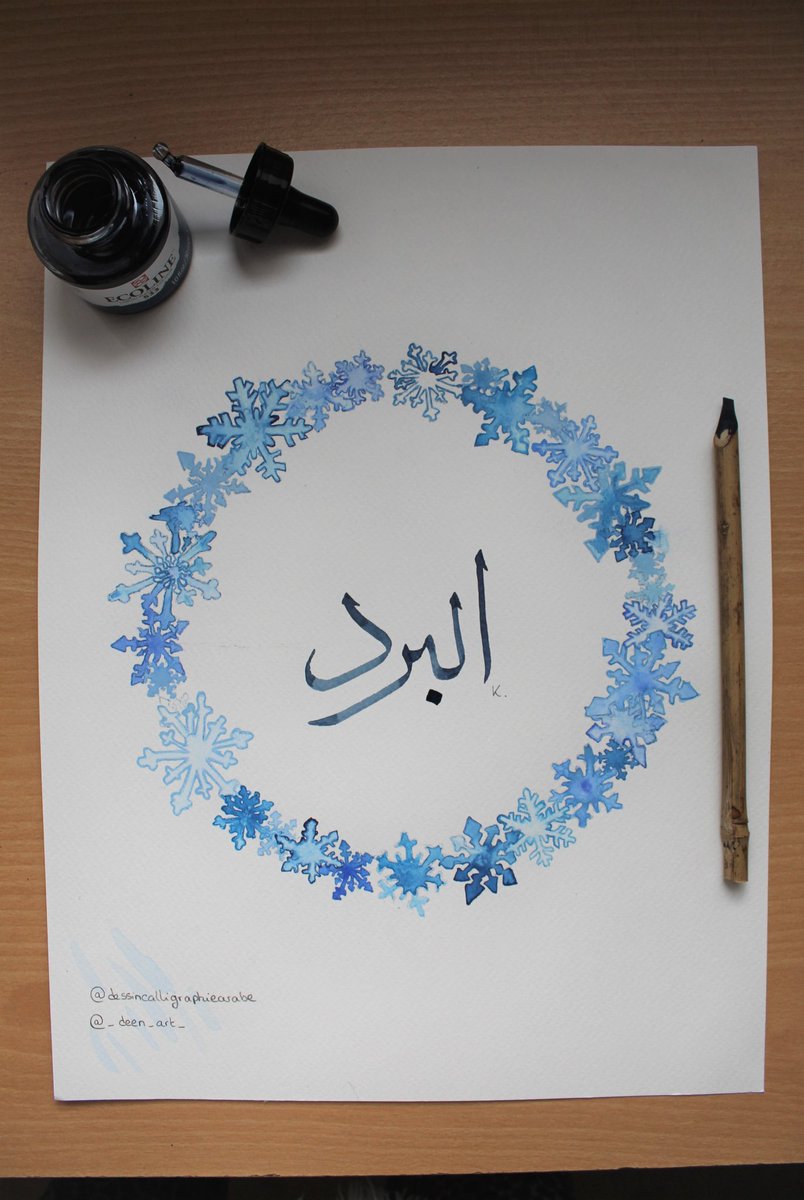 ECOLINE
البرد
K.
@dessincalligraphiearabe
@_deen_art_